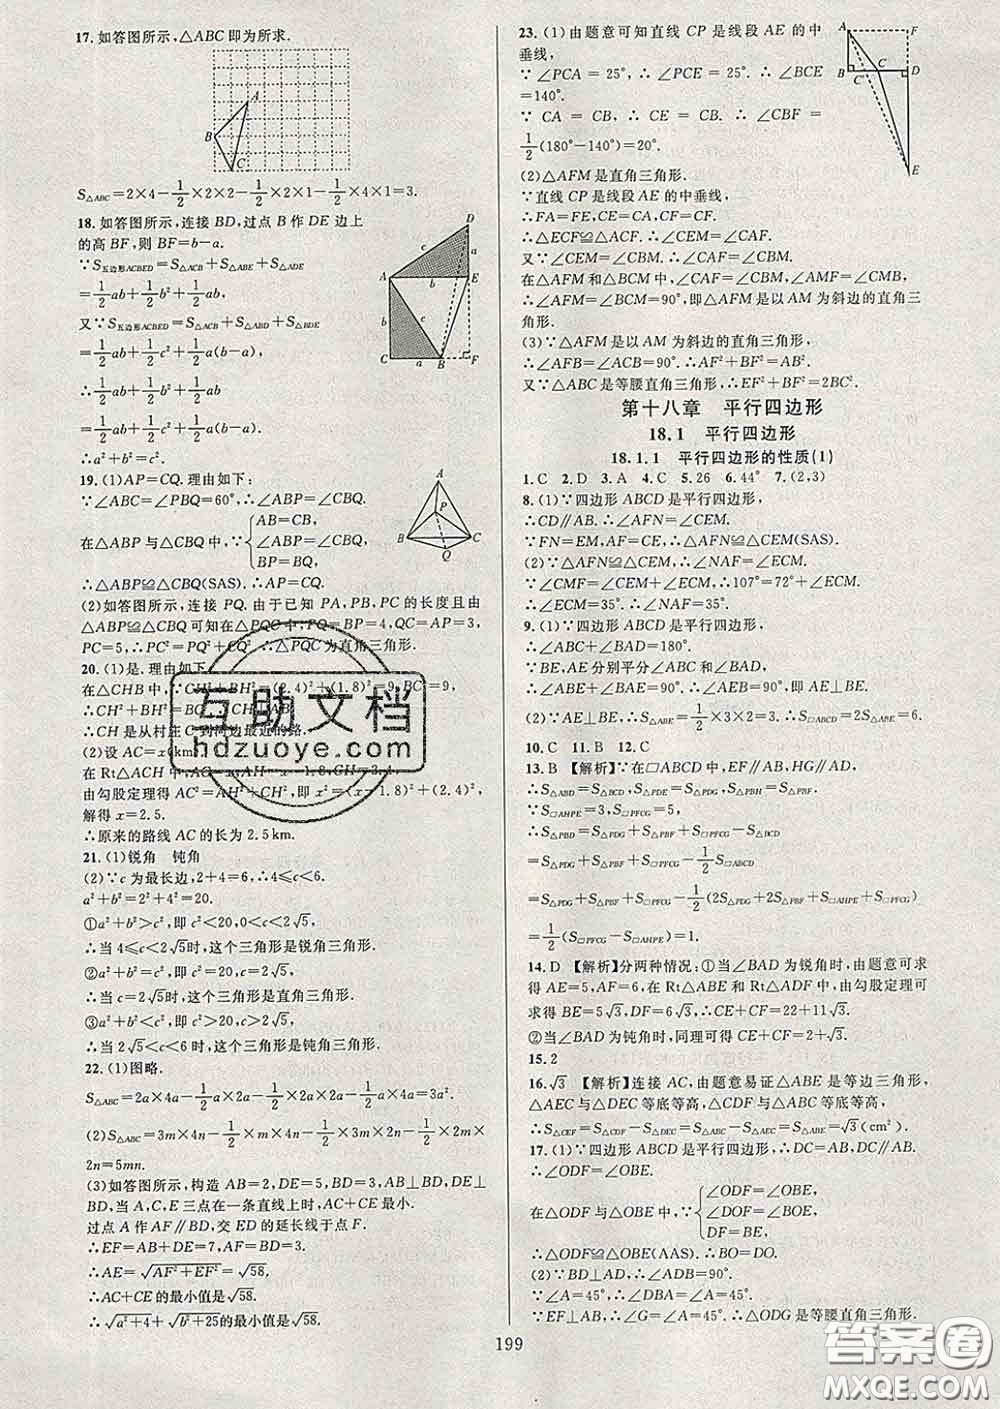 17.如答图所示,△ABC即为所求.
A
B
C
S△ABC=2×4-1/2×2×2-1/2×2×1-1/2×4×1=3.
18.如答图所示,连接BD,过点B作DE边上
的高BF,则BF=b-a.
∵S五边形ACBED=S△ACB+S△ABE+S△ADE
=1/2ab+1/2b²+1/2ab
又∵S五边形ACBED=S△ACB+S△ABD+S△BDE
=1/2ab+1/2c²+1/2a(b-a)
∴1/2ab+1/2b²+1/2ab
=1/2ab+1/2c²+1/2a(b-a)
∴a²+b²=c².
D
c
a
A
b
E
b
c
C
a
B
F
19.(1)AP=CQ.理由如下:
∵∠ABC=∠PBQ=60°,∴∠ABP=∠CBQ.
在△ABP与△CBQ中,∵{AB=CB,
∠ABP=∠CBQ,
BP=BQ,
∴△ABP≌△CBQ(SAS).∴AP=CQ.
A
P
B
C
Q
(2)如答图所示,连接PQ.由于已知PA,PB,PC的长度且由
△ABP≌△CBQ可知在△PQC中,PQ=BP=4,QC=AP=3,
PC=5,∴PC²=PQ²+CQ².∴△PQC为直角三角形.
20.(1)是.理由如下
在△CHB中,∵CH²+BH²=(2.4)²+(1.8)²=9,BC²=9,
∴CH²+BH²=BC².
∴CH是从村庄C到河边最近的路.
(2)设AC=x(km)
在Rt△ACH中,AC=x,AH=x-1.8,CH=2.4
由勾股定理得AC²=AH²+CH²,即x²=(x-1.8)²+(2.4)²,
解得x=2.5.
∴原来的路线AC的长为2.5 km.
21.(1)锐角 钝角
(2)∵c为最长边,2+4=6,∴4≤c<6.
a²+b²=2²+4²=20.
①a²+b²>c²,即c²<20,0<c<2√5,
∴当4≤c<2√5时,这个三角形是锐角三角形.
②a²+b²=c²,即c²=20,c=2√5,
∴当c=2√5时,这个三角形是直角三角形.
③a²+b²<c²,即c²>20,c>2√5,
∴当2√5<c<6时,这个三角形是钝角三角形.
22.(1)图略.
S△ABC=2a×4a-1/2×a×2a-1/2×2a×2a-1/2×a×4a=3a².
(2)S△ABC=3m×4n-1/2×m×4n-1/2×3m×2n-1/2×2m×
2n=5mn.
(3)如答图所示,构造AB=2,DE=5,BD=3,AB⊥BD,DE⊥
BD,当A,C,E三点在一条直线上时,AC+CE最小.
过点A作AF∥BD,交ED的延长线于点F.
∴EF=AB+DE=7,AF=BD=3.
∴AE=√AF²+EF²=√58,
∴AC+CE的最小值是√58.
∴√a²+4+√b²+25的最小值是√58.
23.(1)由题意可知直线CP是线段AE的中
垂线.
∵∠PCA=25°,∴∠PCE=25°.∴∠BCE
=140°.
∵CA=CB,∴CE=CB.∴∠CBF=
1/2(180°-140°)=20°.
A
F
B
C′
C
D
E
(2)△AFM是直角三角形.
∵直线CP是线段AE的中垂线.
∴FA=FE,CE=CA,CF=CF.
∴△ECF≌△ACF.∴∠CEM=∠CAF.
又∵∠CEM=∠CBM.∴∠CAF=∠CBM.
在△AFM和△BCM中,∠CAF=∠CBM,∠AMF=∠BMC,
∴∠AFM=∠BCM=90°,即△AFM是以AM为斜边的直角三
角形.
(3)∵△AFM是以AM为斜边的直角三角形.
∴∠AFB=∠ACB=90°.∴AF²+BF²=AB².
又∵△ABC是等腰直角三角形,∴EF²+BF²=2BC².
第十八章 平行四边形
18.1 平行四边形
18.1.1 平行四边形的性质(1)
1.C 2.D 3.A 4.C 5.26 6.44° 7.(2,3)
8.(1)∵四边形ABCD是平行四边形,
∴CD∥AB.∴∠AFN=∠CEM.
∵FN=EM,AF=CE,∴△AFN≌△CEM(SAS).
(2)∵△AFN≌△CEM,∴∠NAF=∠ECM.
∵∠CMF=∠CEM+∠ECM,∴107°=72°+∠ECM.
∴∠ECM=35°.∴∠NAF=35°.
9.(1)∵四边形ABCD是平行四边形,
∴∠ABC+∠BAD=180°.
∵BE,AE分别平分∠ABC和∠BAD,
∴∠ABE+∠BAE=90°.∴∠AEB=90°,即AE⊥BE.
(2)∵AE⊥BE,∴S△ABE=1/2×3×2=3.∴S□ABCD=2S△ABE=6.
10.C 11.B 12.C
13.B 【解析】∵在□ABCD中,EF∥AB,HG∥AD,
∴S△ABD=S△BCD,S△PDE=S△PDG,S△PBH=S△PBF.
∵S□AHPE=3,S□PFCG=5,
∴S△PBD=S△PDG+S△PBF+S□PFCG-S△BCD
=S△PDG+S△PBF+S□PFCG-1/2S□ABCD
=S△PDG+S△PBF+S□PFCG-1/2(2S△PDG+2S△PBF+S□AHPE+S□PFCG)
=1/2(S□PFCG-S□AHPE)=1.
14.D 【解析】分两种情况:①当∠BAD为锐角时,由题意可求
得AE=5,AF=6,在Rt△ABE和Rt△ADF中,由勾股定理可
求得BE=5√3,DF=6√3,∴CE+CF=22+11√3.
②当∠BAD为钝角时,同理可得CE+CF=2+√3.
15.2
16.√3 【解析】连接AC,由题意易证△ABE是等边三角形,
△AEC与△DEC等底等高,△CDF与△ABC等底等高,
∴S△CEF=S△CDF-S△DEC=S△ABC-S△AEC=S△ABE=√3(cm²).
17.(1)∵四边形ABCD是平行四边形,∴DC=AB,DC∥AB.
∴∠ODF=∠OBE.
在△ODF与△OBE中,∵{∠ODF=∠OBE,
∠DOF=∠BOE,
DF=BE,
∴△ODF≌△OBE(AAS).∴BO=DO.
(2)∵BD⊥AD,∴∠ADB=90°.
∵∠A=45°,∴∠DBA=∠A=45°.
∵EF⊥AB,∴∠G=∠A=45°.∴△ODG是等腰直角三角形.
199
互助文档
hdzuoye.com
答案圈
MXQE.COM